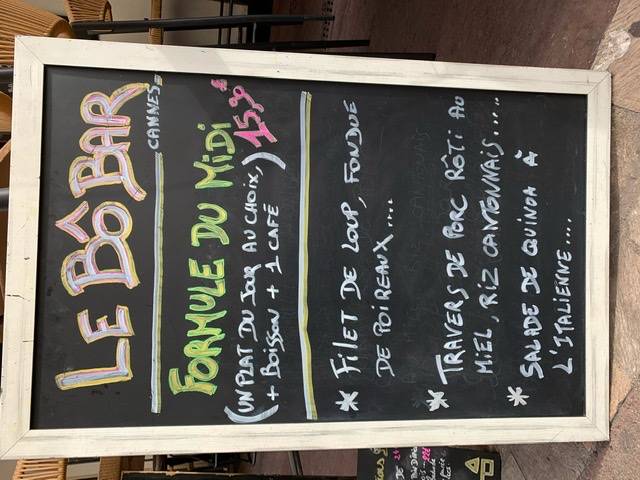 LE BÔBAR
CANNES
FORMULE DU MIDI
15,90€
(UN PLAT DU JOUR AU CHOIX,
+ BOISSON + 1 CAFÉ)
* FILET DE LOUP, FONDUE
DE POIREAUX....
* TRAVERS DE PORC RÔTI AU
MIEL, RIZ CANTONNAIS.....
* SALADE DE QUINOA À
L'ITALIENNE....